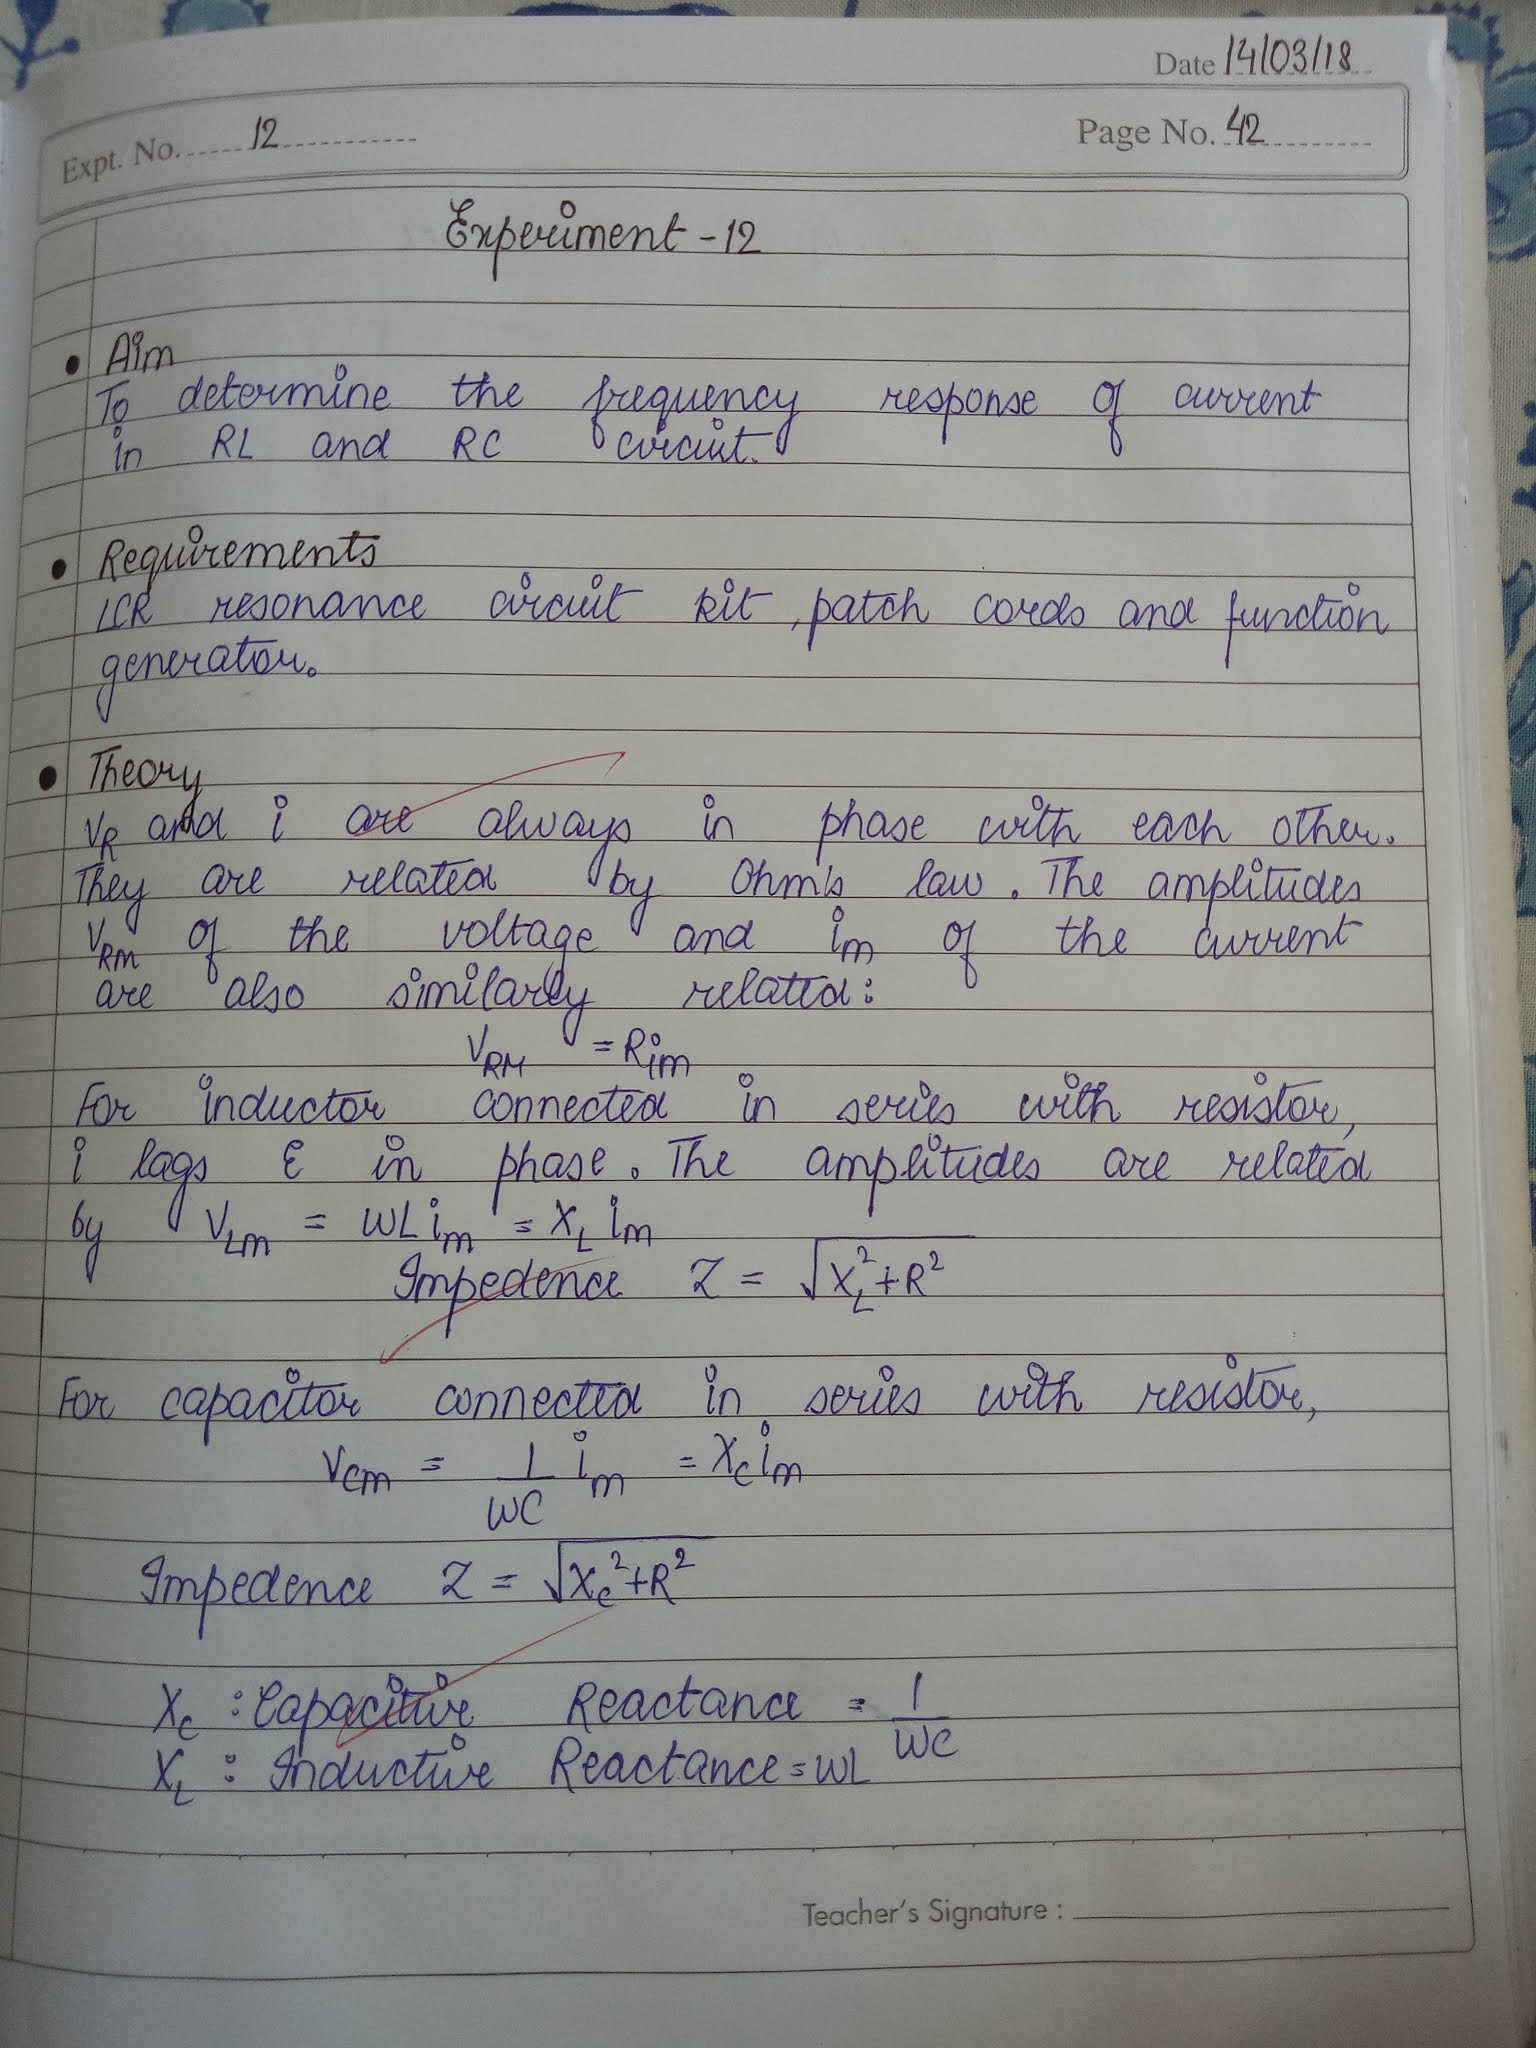 Date 14/03/18
Expt. No. 12
Page No. 42
Experiment - 12
• Aim
To determine the frequency response of current
in RL and RC circuit.
• Requirements
LCR resonance circuit kit, patch cords and function
generator.
• Theory
V_R and i are always in phase with each other.
They are related by Ohm's law. The amplitudes
V_RM of the voltage and i_m of the current
are also similarly related:
V_RM = R i_m
For inductor connected in series with resistor,
i lags ε in phase. The amplitudes are related
by V_Lm = ωL i_m = X_L i_m
Impedence Z = √(X_L² + R²)
For capacitor connected in series with resistor,
V_cm = 1/ωC i_m = X_c i_m
Impedence Z = √(X_c² + R²)
X_c : Capacitive Reactance = 1/ωC
X_L : Inductive Reactance = ωL
Teacher's Signature :